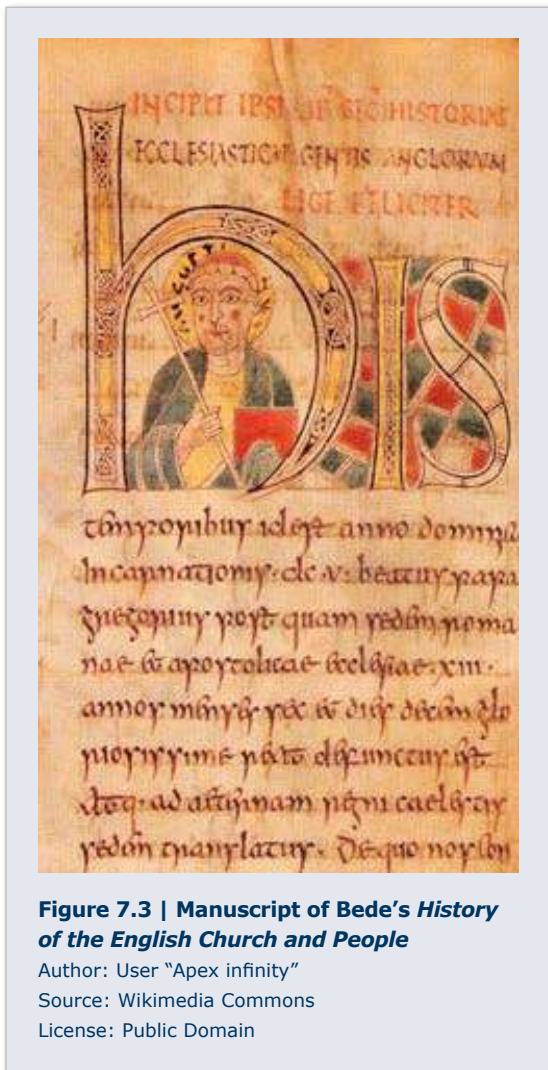 INCIPIT HISTORIAE
ECCLESIASTICAE GENTIS ANGLORUM
LEGE FELICITER
hIS
temporibus id est anno dominicae
Incarnationis · dc · v · beatus papa
gregorius post quam sedem roma
nae et apostolicae ecclesiae · xiii ·
annos menses sex et dies decem glo
riosissime rexit defunctus est
atq: ad aeternam regni caelestis
sedem translatus · De quo nos con
Figure 7.3 | Manuscript of Bede's History
of the English Church and People
Author: User "Apex infinity"
Source: Wikimedia Commons
License: Public Domain